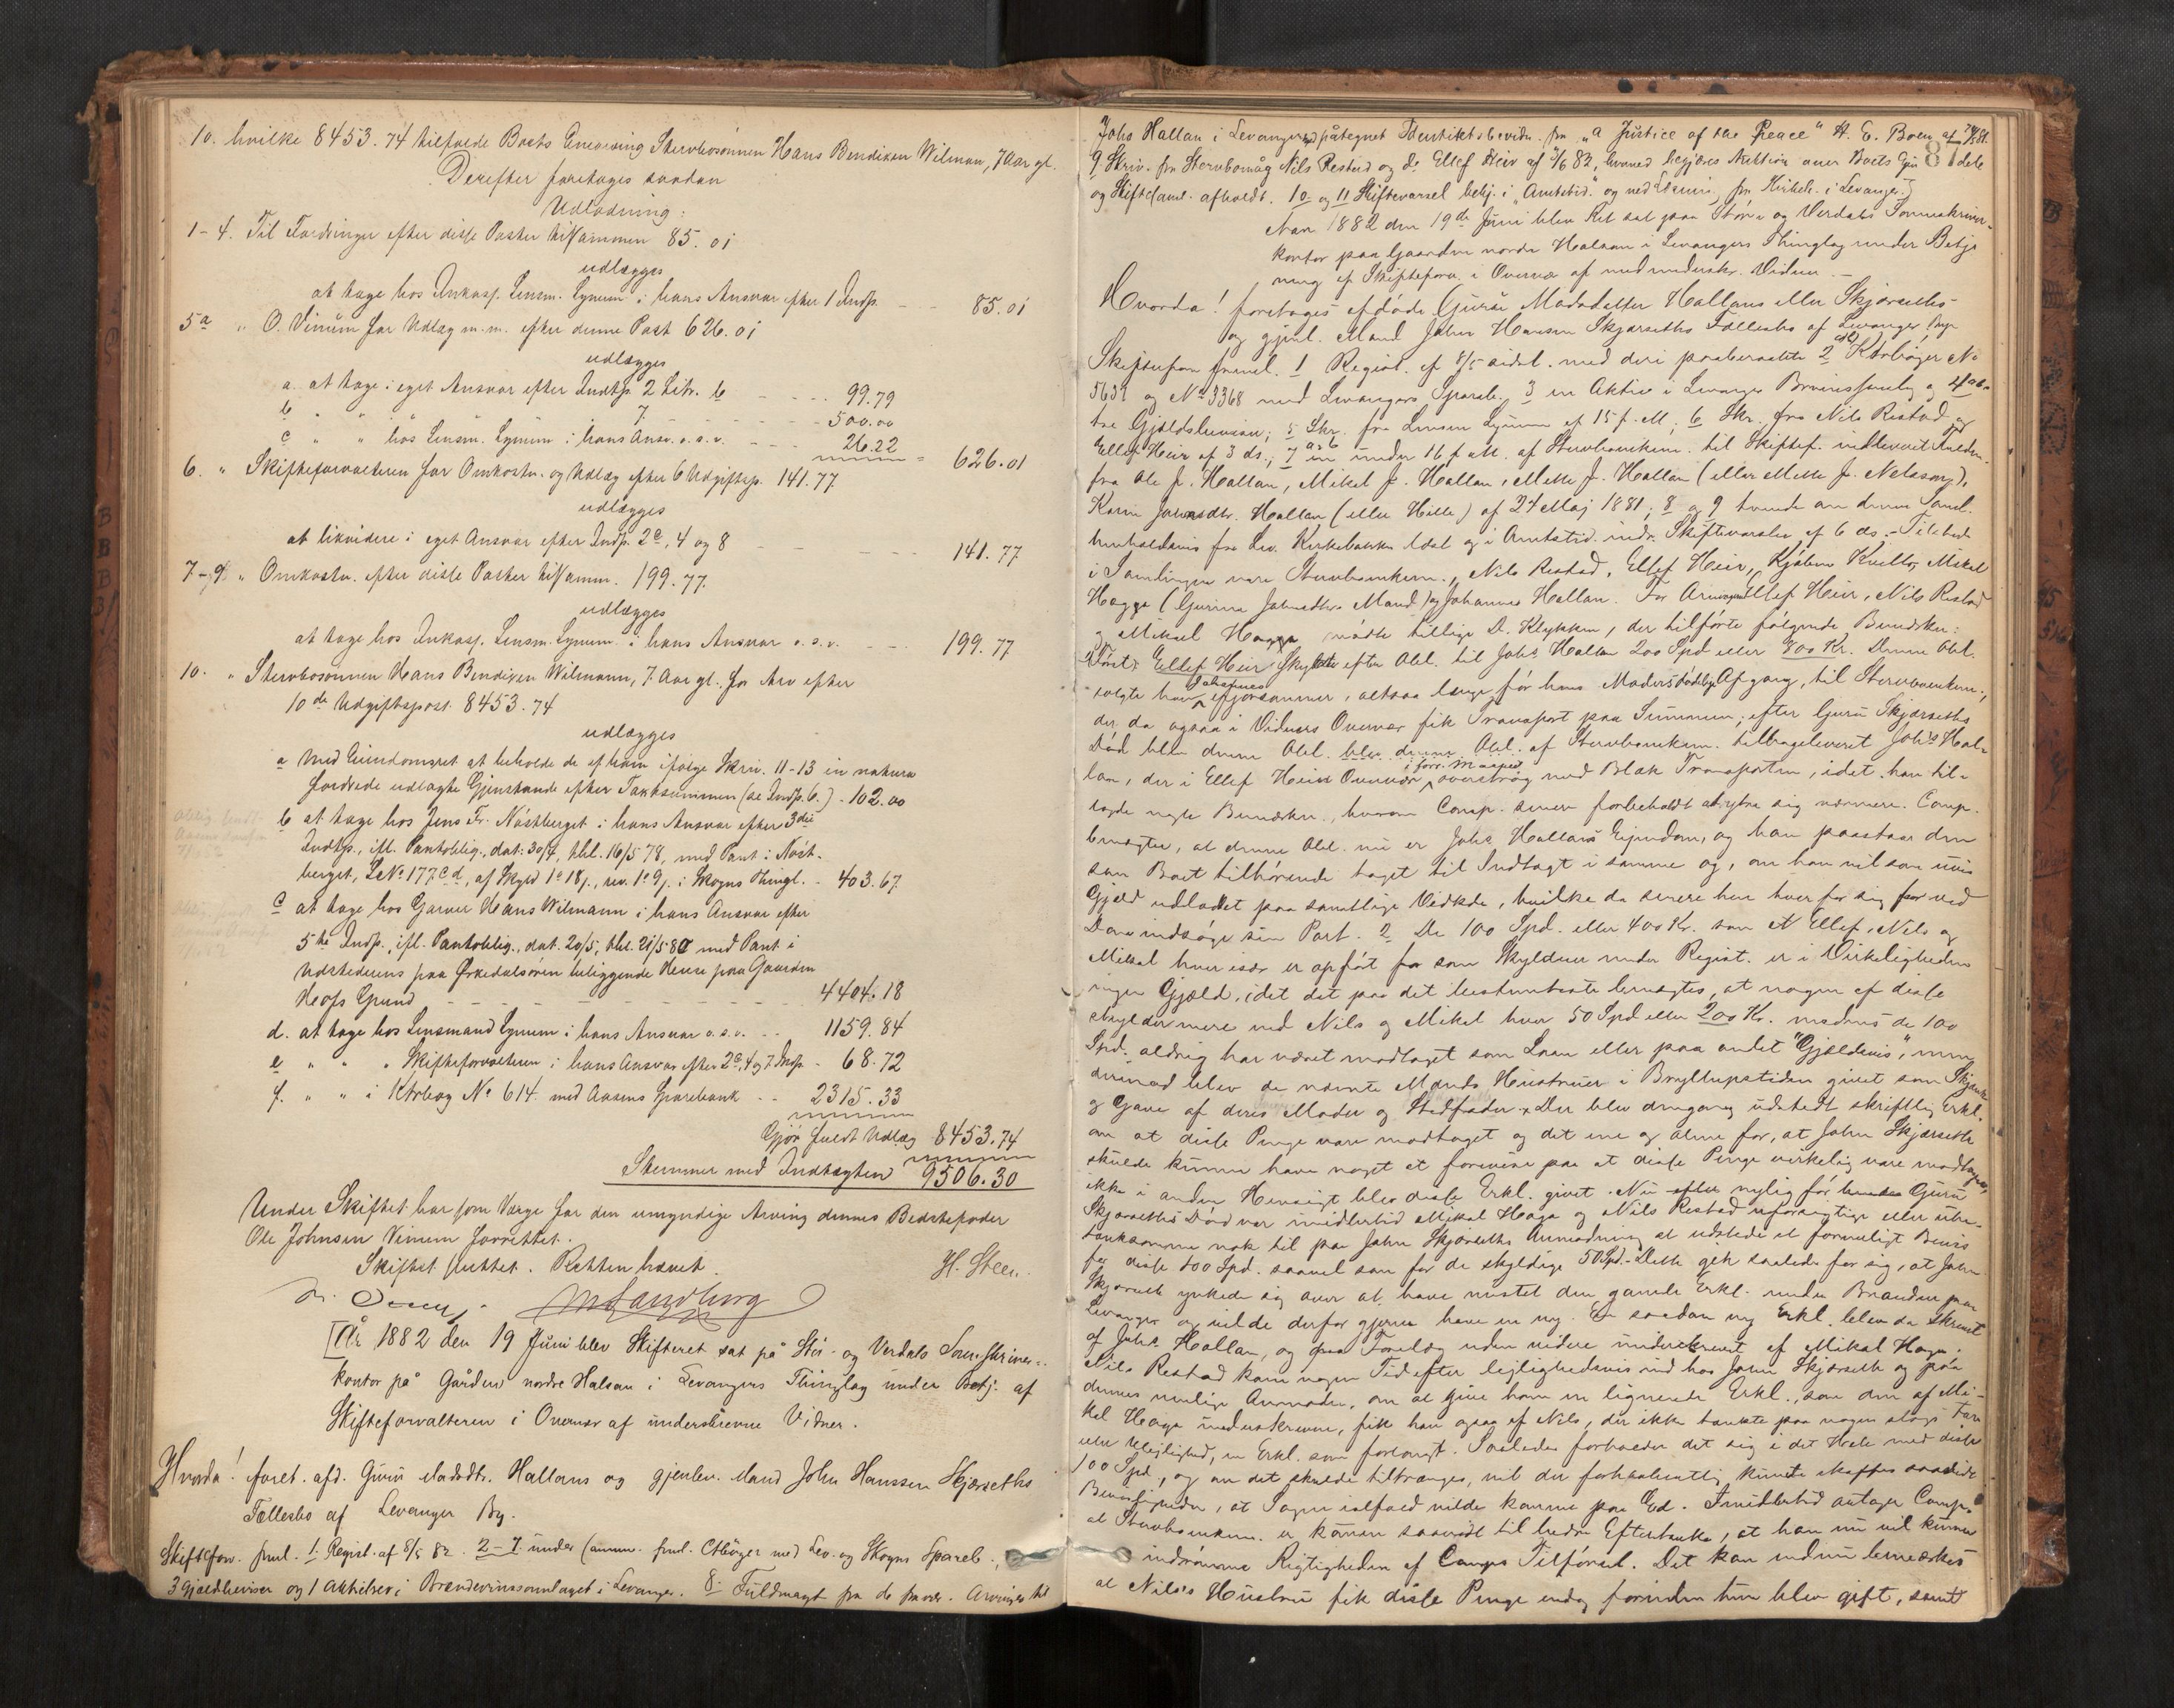 10. hvilke 8453.74 tilfalde Boets Enearving Stervbosønnen Hans Bendixen Wilman, 7 Aar gl.
Derefter foretoges saadan
Udlodning:
1-4. Til Fordringer efter disse Poster tilsammen 85.01
udlægges
at tage hos Inkass. Lensm. Lynum i hans Ansvar efter 1 Indtp. - - 85.01
5a " O. Vinum for Udlæg m.m. efter denne Post 626.01
udlægges
a. at tage i eget Ansvar efter Indtp. 2 Litr. b - - - - 99.79
b " " i " " " 7. - - - - 500.00
c " " hos Lensm. Lynum i hans Ansv. o.s.v. - - - 26.22 626.01
6. " Skifteforvalteren for Omkostn. og Udlæg efter 6 Udgiftsp. 141.77
udlægges
at likvidere i eget Ansvar efter Indtp. 2c, 4 og 8 - - - - 141.77
7-9 " Omkostn. efter disse Poster tilsamm. 199.77.
udlægges
at tage hos Inkass. Lensm. Lynum i hans Ansvar o.s.v. - - - 199.77
10. " Stervbosønnen Hans Bendixen Wilmann, 7 Aar gl. for Arv efter
10de Udgiftspost 8453.74
udlægges
a med Eiendomsret at beholde de af ham ifølge Skriv. 11-13 in natura
fordrede udlagte Gjenstande efter Taxtsummen (se Indtp. 6.) - 102.00
b at tage hos Jens Fr. Nøstberget i hans Ansvar efter 3die
Indtp., ifl. Pantoblig., dat: 30/4, thl. 16/5 78, med Pant i Nøst-
berget, LNo 177cd, af Skyld 1o 18s., rev. 1o 9s. i Skogns Thingl. - 403.67
c at tage hos Garver Hans Wilmann i hans Ansvar efter
5te Indtp., ifl. Pantoblig., dat. 20/5, thl. 21/5 80 med Pant i
Udstederens paa Ørkedalsøren beliggende Huse paa Gaarden
Hofs Grund - - - - - - - - - - 4404.18
d. at tage hos Lensmand Lynum i hans Ansvar o.s.v. - - 1159.84
e " " " Skifteforvalteren i hans Ansvar efter 2c, 4 og 7 Indtp. - 68.72
f. " " i Ktrbog No 614 med Aasens Sparebank - - 2315.33
Gjør fuldt Udlæg 8453.74
Stemmer med Indtægten 9506.30
Under Skiftet har som Værge for den umyndige Arving dennes Bedstefader
Ole Johnsen Vinum forrettet.
Skiftet sluttet. Retten hævet.
H. Steen.
MSandborg
År 1882 den 19 Juni blev Skifteret sat på Stør- og Verdals Sorenskriver-
kontor på Gården nordre Halsan i Levangers Thinglag under Betj. af
Skifteforvalteren i Overvær af underskrevne Vidner.
Hvorda! foret. afd. Guru Madsdtr. Hallans og gjenlev. Mand John Hanssen Skjørseths
Fællesbo af Levanger By.
Skiftefor. freml. 1. Regist. af 8/5 82. 2-7. under samme freml. Ctrbøger med Lev. og Skogns Spareb.,
3 Gjældbeviser og 1 Aktiebrev i Brændevinssamlaget i Levanger. 8. Fuldmagt fra de fravær. Arvinger til
Johs Hallan i Levanger med påtegnet Identitetsbevidn. fra "a Justice of the Peace" H. E. Boen af
9 Skriv. fra Stervbomåg Nils Restad og do Ellef Heir af 3/6 82, hvorved begjæres Auktion over Boets Ejendele
og Skiftesaml. afholdt. 10 og 11 Skiftevarsel bekj. i "Amtstid." og ved fra Kirkeb. i Levanger.
87
Aar 1882 den 19de Juni blev Ret sat paa Støre og Verdals Sorenskriver-
kontor paa Gaarden nordre Halsan i Levangers Thinglag under Betje-
ning af Skifteforv. i Overvær af nedunderskr. Vidner. -
Hvorda! foretoges afdøde Gurue Madsdatter Hallans eller Skjørseths
og gjenl. Mand John Hansen Skjørseths Fællesbo af Levanger By.
Skifteforv. freml. 1 Regist. af 8/5 sidstl. med deri paaberaabte 2 Ktrbøger No
5631 og No 3368 med Levangers Spareb., 3 en Aktie i Levanger Brævinssamlag 4
tre Gjældsbeviser; 5 Skr. fra Lensm Lynum af 15 f.M; 6 Skr. fra Nils Restad og
Ellef Heir af 3 ds.; 7 en under 16 f.M. af Stervbomkem. til Skiftef. indleveret Fuldm.
fra Ole J. Hallan, Mikal J. Hallan, Mette J. Hallan (eller Mette J. Nelson),
Karen Johnsdtr. Hallan (eller Hille) af 24 Maj 1881; 8 og 9 tvende om denne Saml.
henholdsvis fra Lev. Kirkebakke læst og i Amtstid. indr. Skiftevarsler af 6 ds. - Tilstede
i Samlingen vare Stervbomkem., Nils Restad, Ellef Heir, Kjøbm Kvello, Mikal
Hagge (Gurina Johnsdtrs Mand) og Johannes Hallan. For Arvingerne Ellef Heir, Nils Restad
og Mikal Haga mødte tillige D. Klykken, der tilførte følgende Bemærkn:
Først: Ellef Heir Skyldte efter Obl. til Johs Hallan 200 Spd eller 800 Kr. Denne Obl.
solgte han Johannes ifjorsommer, altsaa længe før hans Moders dødelige Afgang, til Stervbomkem.,
der da ogsaa i Vidners Overvær fik Transport paa Summen; efter Guru Skjørseths
Død blev denne Obl. blev denne Obl. af Stervbomkem. tilbageleveret Johs Hal-
lan, der i Ellef Heirs Overvær i forr. Maaned overstrøg med Blæk Transporten, idet han til-
lagde nogle Bemærkn., hvorom Comp. senere forbeholdt at ytre sig nærmere. Comp.
benægter, at denne Obl. nu er Johs Hallans Ejendom, og han paastaar den
som Boet tilhørende taget til Indtægt i samme og, om han vil som uvis
Gjæld udloddet paa samtlige Vedkde, hvilke da senere hver for sig faar ved
Dom indsøge sin Part. 2. De 100 Spd. eller 400 Kr. som Ellef, Nils og
Mikal hver især er opført for som Skyldner under Regist. er i Virkeligheden
ingen Gjæld, idet det paa det bestemteste benægtes, at nogen af disse
skylder mere end Nils og Mikal hver 50 Spd eller 200 Kr. medens de 100
Spd. aldrig har været modtaget som Laan eller paa andet "Gjældsvis", men
derimod blev de nævnte Mænds Hustruer i Bryllupstiden givet som Skjænk
og Gave af deres Moder og Stedfader. Der blev dengang udstedt skriftlig Erkl.
om at disse Penge vare modtaget og det ene og alene for, at John Skjørseth
skulde kunne have noget at forevise paa at disse Penge virkelig vare modtagne,
ikke i anden Hensigt blev disse Erkl. givet. Nu efter nylig før Guru
Skjørseths Død var imidlertid Mikal Haga og Nils Restad uforsigtige eller ube-
tænksomme nok til paa John Skjørseths Anmodning at udstede et formeligt Bevis
for disse 100 Spd. saavel som for de skyldige 50 Spd. - Dette gik saaledes for sig, at John
Skjørseth ynkede sig over at have mistet den gamle Erkl. under Branden paa
Levanger og vilde derfor gjerne have en ny. En saadan ny Erkl. blev da skrevet
af Johs Hallan, og paa Forelæg uden videre underskrevet af Mikal Haga.
Nils Restad kom nogen Tid efter lejlighedsvis ind hos John Skjørseth og paa
dennes venlige Anmodn. om at give ham en lignende Erkl., som den af Mi-
kal Haga underskrevne, fik han ogsaa af Nils, der ikke tænkte paa nogen slags Fare
eller Ulejlighed, en Erkl. som forlangt. Saaledes forholder det sig i det Hele med disse
100 Spd, og om det skulde tiltrænges, vil der forhaabentlig kunne skaffes saadanne
Bevisligheder, at Sagen ialfald vilde komme paa Ed. Imidlertid antager Comp.
at Stervbomkem. er kommen saavidt til bedre Eftertanke, at han nu vil kunne
indrømme Rigtigheden af Comps Tilførsel. Det kan endnu bemærkes
at Nils's Hustru fik disse Penge endog forinden hun blev gift, samt